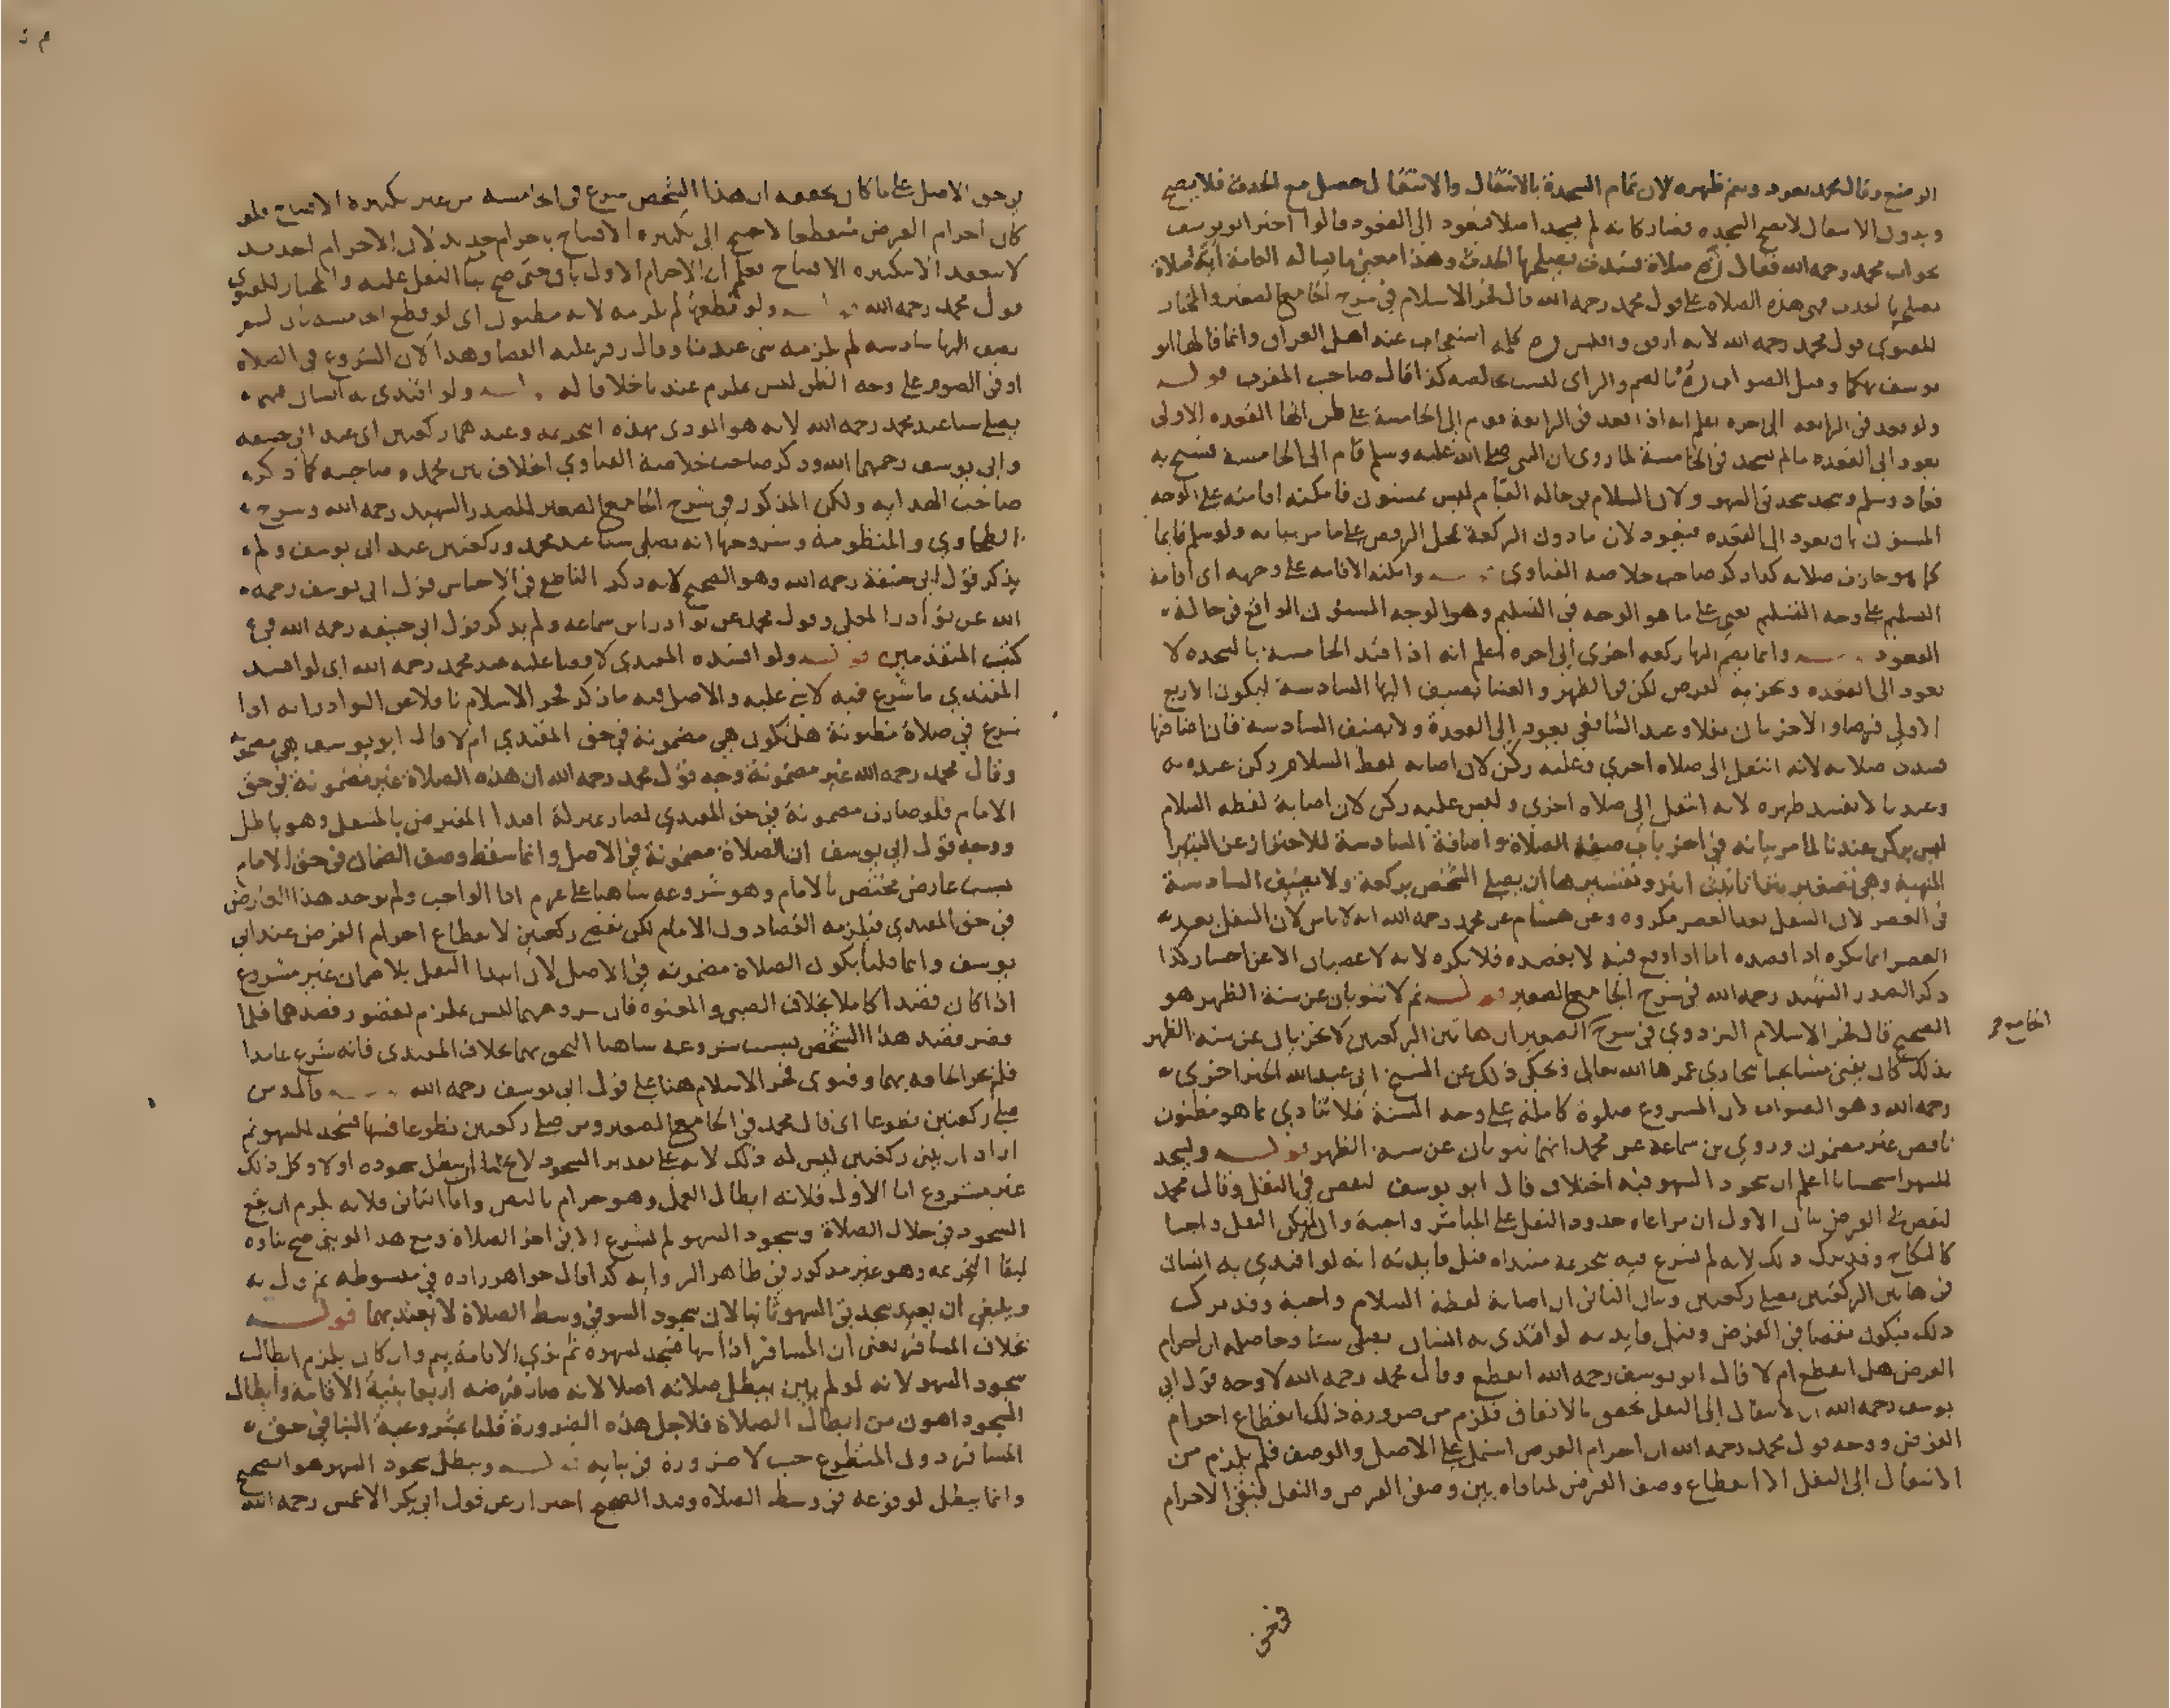 الوضع وقال محمد يعود ويتم ظهره لان تمام السجدة بالانتقال والانتقال حصل مع الحدث فلا يصح
وبدون الانتقال لا تصح السجده فصار كانه لم يسجد اصلا فيعود الى القعود قالوا اخبر ابو يوسف
بجواب محمد رحمه الله فقال زه صلاة فسدت يصلحها الحدث وهذا معنى ما يساله العامة اية صلاة
يصلحها الحدث فهي هذه الصلاه على قول محمد رحمه الله قال فخر الاسلام في شرح الجامع الصغير والمختار
للفتوى قول محمد رحمه الله لانه ارفق واقيس زه كلمه استعجاب عند اهل العراق وانما قالها ابو
يوسف تهكما وقيل الصواب زه بالضم والزاى ليست بخالصه كذا قال صاحب المغرب قوله
ولو قعد في الرابعه الى اخره اعلم انه اذا قعد في الرابعة وقام الى الخامسة على ظن انها القعده الاولى
يعود الى القعده ما لم يسجد في الخامسة لما روى ان النبى صلى الله عليه وسلم قام الى الخامسة فسبح به
فعاد وسلم وسجد سجدتى السهو ولان السلام في حالة القيام ليس بمسنون فامكنه اقامته على الوجه
المسنون بان يعود الى القعده فيعود لان ما دون الركعة بمحل الرفض على ما مر بيانه ولو سلم قائما
كما هو جازت صلاته كذا ذكر صاحب خلاصه الفتاوى قوله وامكنه الاقامه على وجهه اى اقامة
التسليم على وجه التسليم يعني على ما هو الوجه في التسليم وهو الوجه المسنون الواقع في حالة
القعود قوله وانما يضم اليها ركعه اخرى الى اخره اعلم انه اذا قيد الخامسة بالسجده لا
يعود الى القعده وتجزيه الفرض لكن في الظهر والعشا يضيف اليها السادسة ليكون الاربع
الاولى فرضا والاخريان نفلا وعند الشافعي يعود الى القعدة ولا يضيف السادسه فان اضافها
فسدت صلاته لانه انتقل الى صلاه اخرى وعليه ركن لان اصابه لفظ السلام ركن عنده
وعندنا لا تفسد ظهره لانه انتقل الى صلاه اخرى وليس عليه ركن لان اصابة لفظه السلام
ليس بركن عندنا لما مر بيانه في اخر باب صفة الصلاة واضافة السادسة للاحتراز عن البتيرا
المنهية وهي تصغير بتيا تانيث ابتر وتفسيرها ان يصلى الشخص بركعة ولا يضيف السادسة
في العصر لان التنفل بعد العصر مكروه وعن هشام عن محمد رحمه الله انه لا باس لان التنفل بعد
العصر انما يكره اذا قصده اما اذا وقع فيه لا بقصده فلا يكره لانه لا عصيان الا عن اختيار كذا
ذكر الصدر الشهيد رحمه الله في شرح الجامع الصغير قوله ثم لا تنوبان عن سنة الظهر هو
الصحيح قال فخر الاسلام البزدوي في شرح الصغير ان هاتين الركعتين لا تجزيان عن سنه الظهر
الخامسه
بذلك كان يفتى مشايخنا ببخارى عمرها الله تعالى ويحكى ذلك عن الشيخ ابي عبد الله الخيزاخزي
رحمه الله وهو الصواب لان المشروع صلوة كاملة على وجه السنة فلا تتادي بما هو مظنون
ناقص غير مضمون وروي بن سماعه عن محمد انهما تنوبان عن سنة الظهر قوله ويسجد
للسهو استحسانا اعلم ان سجود السهو فيه اختلاف قال ابو يوسف لنقص في النفل وقال محمد
لنقص في الفرض بيان الاول ان مراعاه حدود النفل على المباشر واجبة وان لم يكن النفل واجبا
كالنكاح وقد ترك ذلك لانه لم يشرع فيه بتحريمة مبتداه قيل فايدته انه لو اقتدي به انسان
في هاتين الركعتين يصلى ركعتين وبيان الثانى ان اصابة لفظة السلام واجبة وقد ترك
ذلك فيكون نقصا في الفرض وقيل فايدته لو اقتدى به انسان يصلى ستا وحاصله ان احرام
الفرض هل انقطع ام لا قال ابو يوسف رحمه الله انقطع وقال محمد رحمه الله لا وجه قول ابي
يوسف رحمه الله ان الانتقال الى النفل تحقق بالاتفاق فلزم من ضرورة ذلك انقطاع احرام
الفرض ووجه قول محمد رحمه الله ان احرام الفرض اشتمل على الاصل والوصف فلم يلزم من
الانتقال الى النفل الا انقطاع وصف الفرض لمنافاه بين وصفى الفرض والنفل فبقى الاحرام
في حق
في حق الاصل على ما كان يحققه ان هذا الشخص شرع في الخامسه من غير تكبيرة الافتتاح فلو
كان احرام الفرض منقطعا لاحتيج الى تكبيره الافتتاح باحرام جديد لان الاحرام الجديد
لا ينعقد الا بتكبيره الافتتاح فعلم ان الاحرام الاول باق حتى صح بنا النفل عليه والمختار للفتوى
قول محمد رحمه الله قوله ولو قطعها لم يلزمه لانه مظنون اى لو قطع الخامسه بان لم
يضف اليها سادسه لم يلزمه شى عندنا وقال زفر عليه القضا وهذا لان الشروع في الصلاه
او في الصوم على وجه الظن ليس بملزم عندنا خلافا له قوله ولو اقتدى به انسان فيهما
يصلى ستا عند محمد رحمه الله لانه هو المودى بهذه التحريمه وعندهما ركعتين اى عند ابى حنيفه
وابي يوسف رحمهما الله وذكر صاحب خلاصة الفتاوي الخلاف بين محمد وصاحبيه كما ذكره
صاحب الهدايه ولكن المذكور في شرح الجامع الصغير للصدر الشهيد رحمه الله وشرح
الطحاوي والمنظومة وشروحها انه يصلى ستا عند محمد وركعتين عند ابى يوسف ولم
يذكر قول ابى حنيفة رحمه الله وهو الصحيح لانه ذكر الناطفى في الاجناس قول ابى يوسف رحمه
الله عن نوادر المعلى وقول محمد عن نوادر ابن سماعه ولم يذكر قول ابى حنيفه رحمه الله في
كتب المتقدمين قوله ولو افسده المقتدى لا قضا عليه عند محمد رحمه الله اى لو افسد
المقتدي ما شرع فيه لا شي عليه والاصل فيه ما ذكر فخر الاسلام ناقلا عن النوادر انه اذا
شرع في صلاة مظنونة هل تكون هي مضمونة في حق المقتدي ام لا قال ابو يوسف هي مضمونة
وقال محمد رحمه الله غير مضمونة وجه قول محمد رحمه الله ان هذه الصلاة غير مضمونة في حق
الامام فلو صارت مضمونة في حق المقتدي لصار بمنزلة اقتدا المفترض بالمتنفل وهو باطل
ووجه قول ابي يوسف ان الصلاة مضمونة في الاصل وانما سقط وصف الضمان في حق الامام
بسبب عارض مختص بالامام وهو شروعه ساهيا على عزم ادا الواجب ولم يوجد هذا العارض
في حق المقتدي فيلزمه القضا دون الامام لكن يقضى ركعتين لانقطاع احرام الفرض عند ابى
يوسف وانما قلنا بكون الصلاة مضمونه في الاصل لان ابتدا النفل بلا ضمان غير مشروع
اذا كان قصدا كاملا بخلاف الصبى والمعتوه فان شروعهما ليس بملزم لقصور قصدهما فلما
قصر قصد هذا الشخص بسبب شروعه ساهيا التحق بهما بخلاف المقتدى فانه شرع عامدا
فلم يجز الحاقه بهما وفتوى فخر الاسلام هنا على قول ابى يوسف رحمه الله قوله قال ومن
صلى ركعتين تطوعا اى قال محمد في الجامع الصغير ومن صلى ركعتين تطوعا فسها فسجد للسهو ثم
اراد ان يبنى ركعتين ليس له ذلك لانه على تقدير السجود لا يخلو اما ان يبطل سجوده اولا وكل ذلك
غير مشروع اما الاول فلانه ابطال العمل وهو حرام بالنص واما الثانى فلانه يلزم ان يقع
السجود في خلال الصلاة وسجود السهو لم يشرع الا في اخر الصلاة ومع هذا لو بنى صح بناوه
لبقا التحريمه وهو غير مذكور في ظاهر الروايه كذا قال خواهر زاده في مبسوطه
وينبغى ان يعيد سجدتى السهو ثانيا لان سجود السهو في وسط الصلاة لا يعتد بهما قوله
بخلاف المسافر يعنى ان المسافر اذا سها فسجد لسهوه ثم نوي الاقامة يتم وان كان يلزم ابطال
سجود السهو لانه لو لم يبن يبطل صلاته اصلا لانه صار فرضه اربعا بنية الاقامة وابطال
السجود اهون من ابطال الصلاة فلاجل هذه الضرورة قلنا بمشروعية البنا في حق
المسافر دون المتطوع حيث لا ضرورة في بنايه قوله ويبطل سجود السهو هو الصحيح
وانما يبطل لوقوعه في وسط الصلاه وقيد الصحيح احترازا عن قول ابى بكر الاعمش رحمه الله